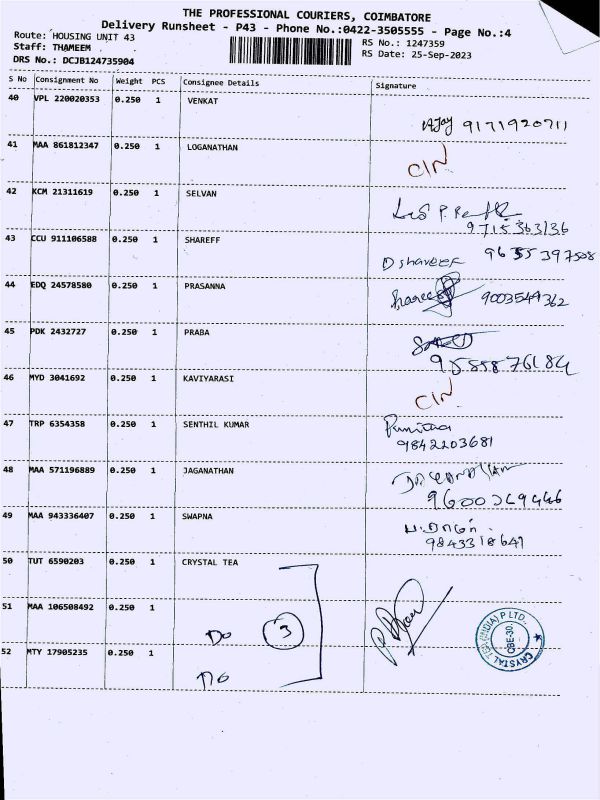 THE PROFESSIONAL COURIERS, COIMBATORE
Delivery Runsheet - P43 - Phone No.:0422-3505555 - Page No.:4
Route: HOUSING UNIT 43
RS No.: 1247359
Staff: THAMEEM
RS Date: 25-Sep-2023
DRS No.: DCJB124735904
S No Consignment No Weight PCS Consignee Details Signature
40 VPL 220020353 0.250 1 VENKAT
AJay 9171920711
41 MAA 861812347 0.250 1 LOGANATHAN
C/N
42 KCM 21311619 0.250 1 SELVAN
9715363136
43 CCU 911106588 0.250 1 SHAREFF
D shareef 9655397508
44 EDQ 24578580 0.250 1 PRASANNA
9003549362
45 PDK 2432727 0.250 1 PRABA
9585876184
46 MYD 3041692 0.250 1 KAVIYARASI
C/N
47 TRP 6354358 0.250 1 SENTHIL KUMAR
Punitha
9842203681
48 MAA 571196889 0.250 1 JAGANATHAN
9600269446
49 MAA 943336407 0.250 1 SWAPNA
9843318641
50 TUT 6590203 0.250 1 CRYSTAL TEA
51 MAA 106508492 0.250 1
Do 3
52 MTY 17905235 0.250 1
Do
CRYSTAL TEA (INDIA) P LTD.
CBE-30.